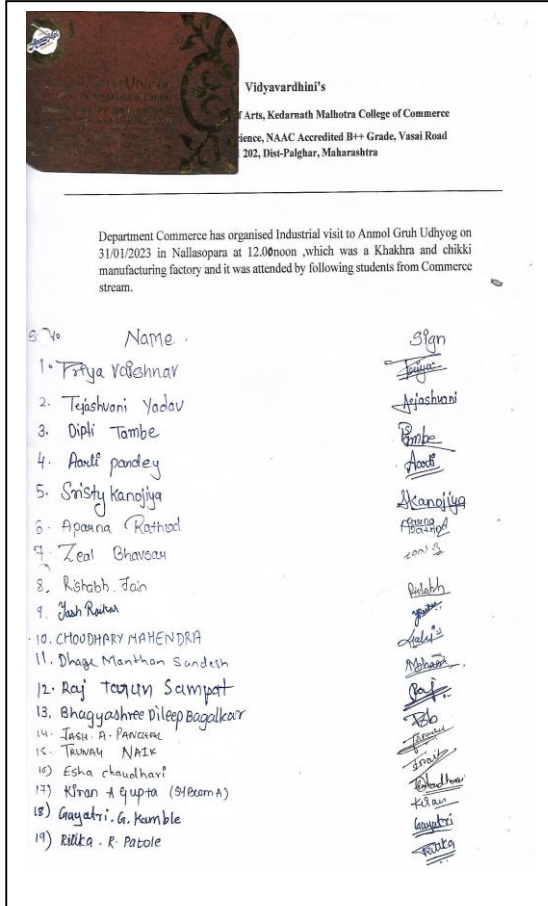 Vidyavardhini's
f Arts, Kedarnath Malhotra College of Commerce
ience, NAAC Accredited B++ Grade, Vasai Road
202, Dist-Palghar, Maharashtra
Department Commerce has organised Industrial visit to Anmol Gruh Udhyog on
31/01/2023 in Nallasopara at 12.00noon ,which was a Khakhra and chikki
manufacturing factory and it was attended by following students from Commerce
stream.
S. No Name. Sign
1. Priya Vaishnav Priya
2. Tejashvani Yadav Tejashvani
3. Dipli Tambe Tambe
4. Aarti pandey Aarti
5. Sristy Kanojiya SKanojiya
6. Aparna Rathod Aparna Rathod
7. Zeal Bhavsar Zeal B
8. Rishabh. Jain Rishabh
9. Yash Raikar
10. CHOUDHARY MAHENDRA
11. Dhage Manthan Sandesh
12. Raj Tarun Sampat Raj
13. Bhagyashree Dileep Bagalkar
14. JASH. A. PANCHAL
15. TRUNAY NAIK
16) Esha chaudhari
17) Kiran A Gupta (SYBcom A) Kiran
18) Gayatri. G. Kamble Gayatri
19) Ritika. R. Patole Ritika